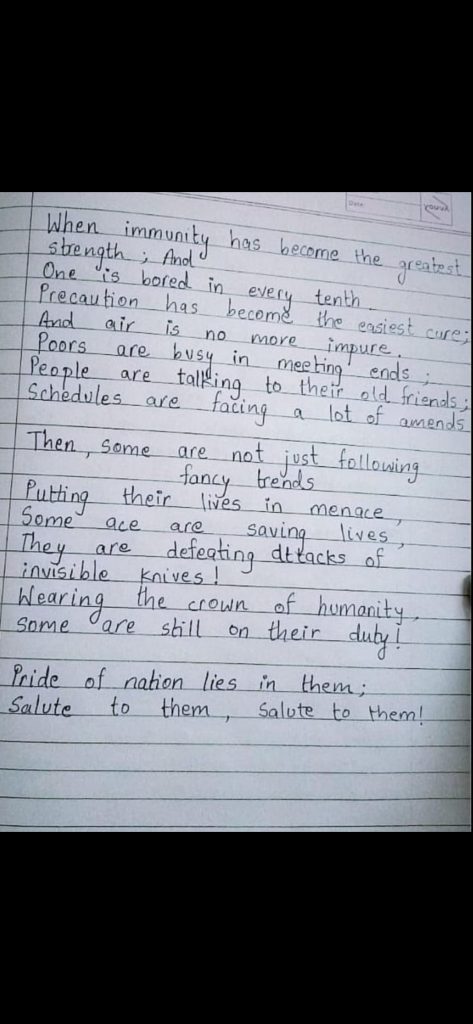 Date
When immunity has become the greatest
strength ; And
One is bored in every tenth
Precaution has become the easiest cure;
And air is no more impure.
Poors are busy in meeting ends ;
People are talking to their old friends;
Schedules are facing a lot of amends
Then, some are not just following
fancy trends
Putting their lives in menace,
Some ace are saving lives,
They are defeating attacks of
invisible knives!
Wearing the crown of humanity,
some are still on their duty!
Pride of nation lies in them;
Salute to them, Salute to them!